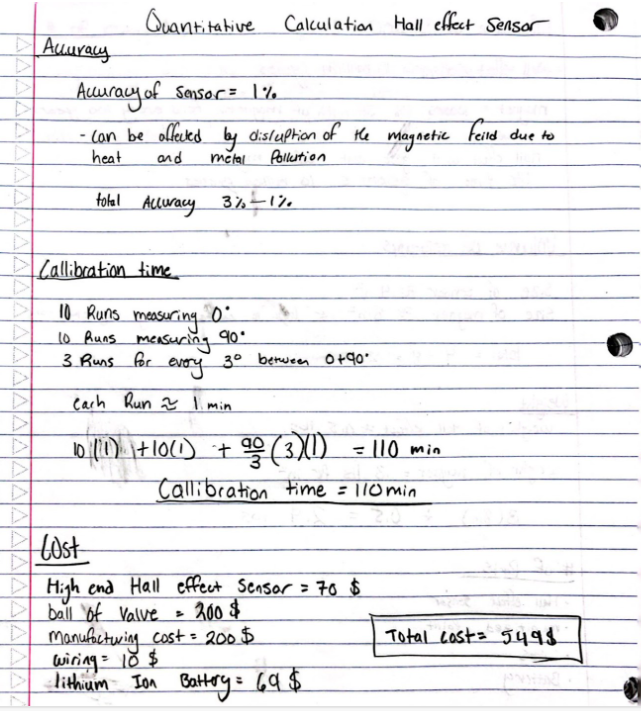 Quantitative Calculation Hall effect Sensor
Accuracy
Accuracy of sensor = 1%
- can be affected by disruption of the magnetic feild due to
heat and metal Pollution
total Accuracy 3% - 1%
Callibration time
10 Runs measuring 0°
10 Runs measuring 90°
3 Runs for every 3° between 0+90°
Each Run ≈ 1 min
10(1) + 10(1) + 90/3 (3)(1) = 110 min
Callibration time = 110 min
Cost
High end Hall effect Sensor = 70 $
ball of Valve = 200 $
Manufacturing cost = 200 $
Total cost = 549$
wiring = 10 $
lithium Ion Battery = 69 $